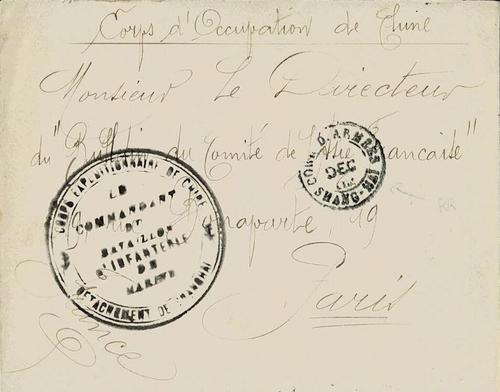 Corps d'Occupation de Chine
Monsieur Le Directeur
du "Bulletin du Comité de l'Asie Française"
Bonaparte, 19
Paris
France
CORPS EXPEDITIONNAIRE DE CHINE
LE
COMMANDANT
DU
BATAILLON
D'INFANTERIE
DE
MARINE
DETACHEMENT DE SHANGHAI
CORR. D. ARMEES
DEC
SHANG-HAI